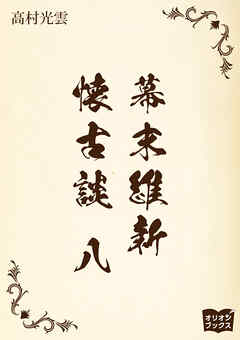 高村光雲
幕末維新
懐古談 八
オリオン
ブックス